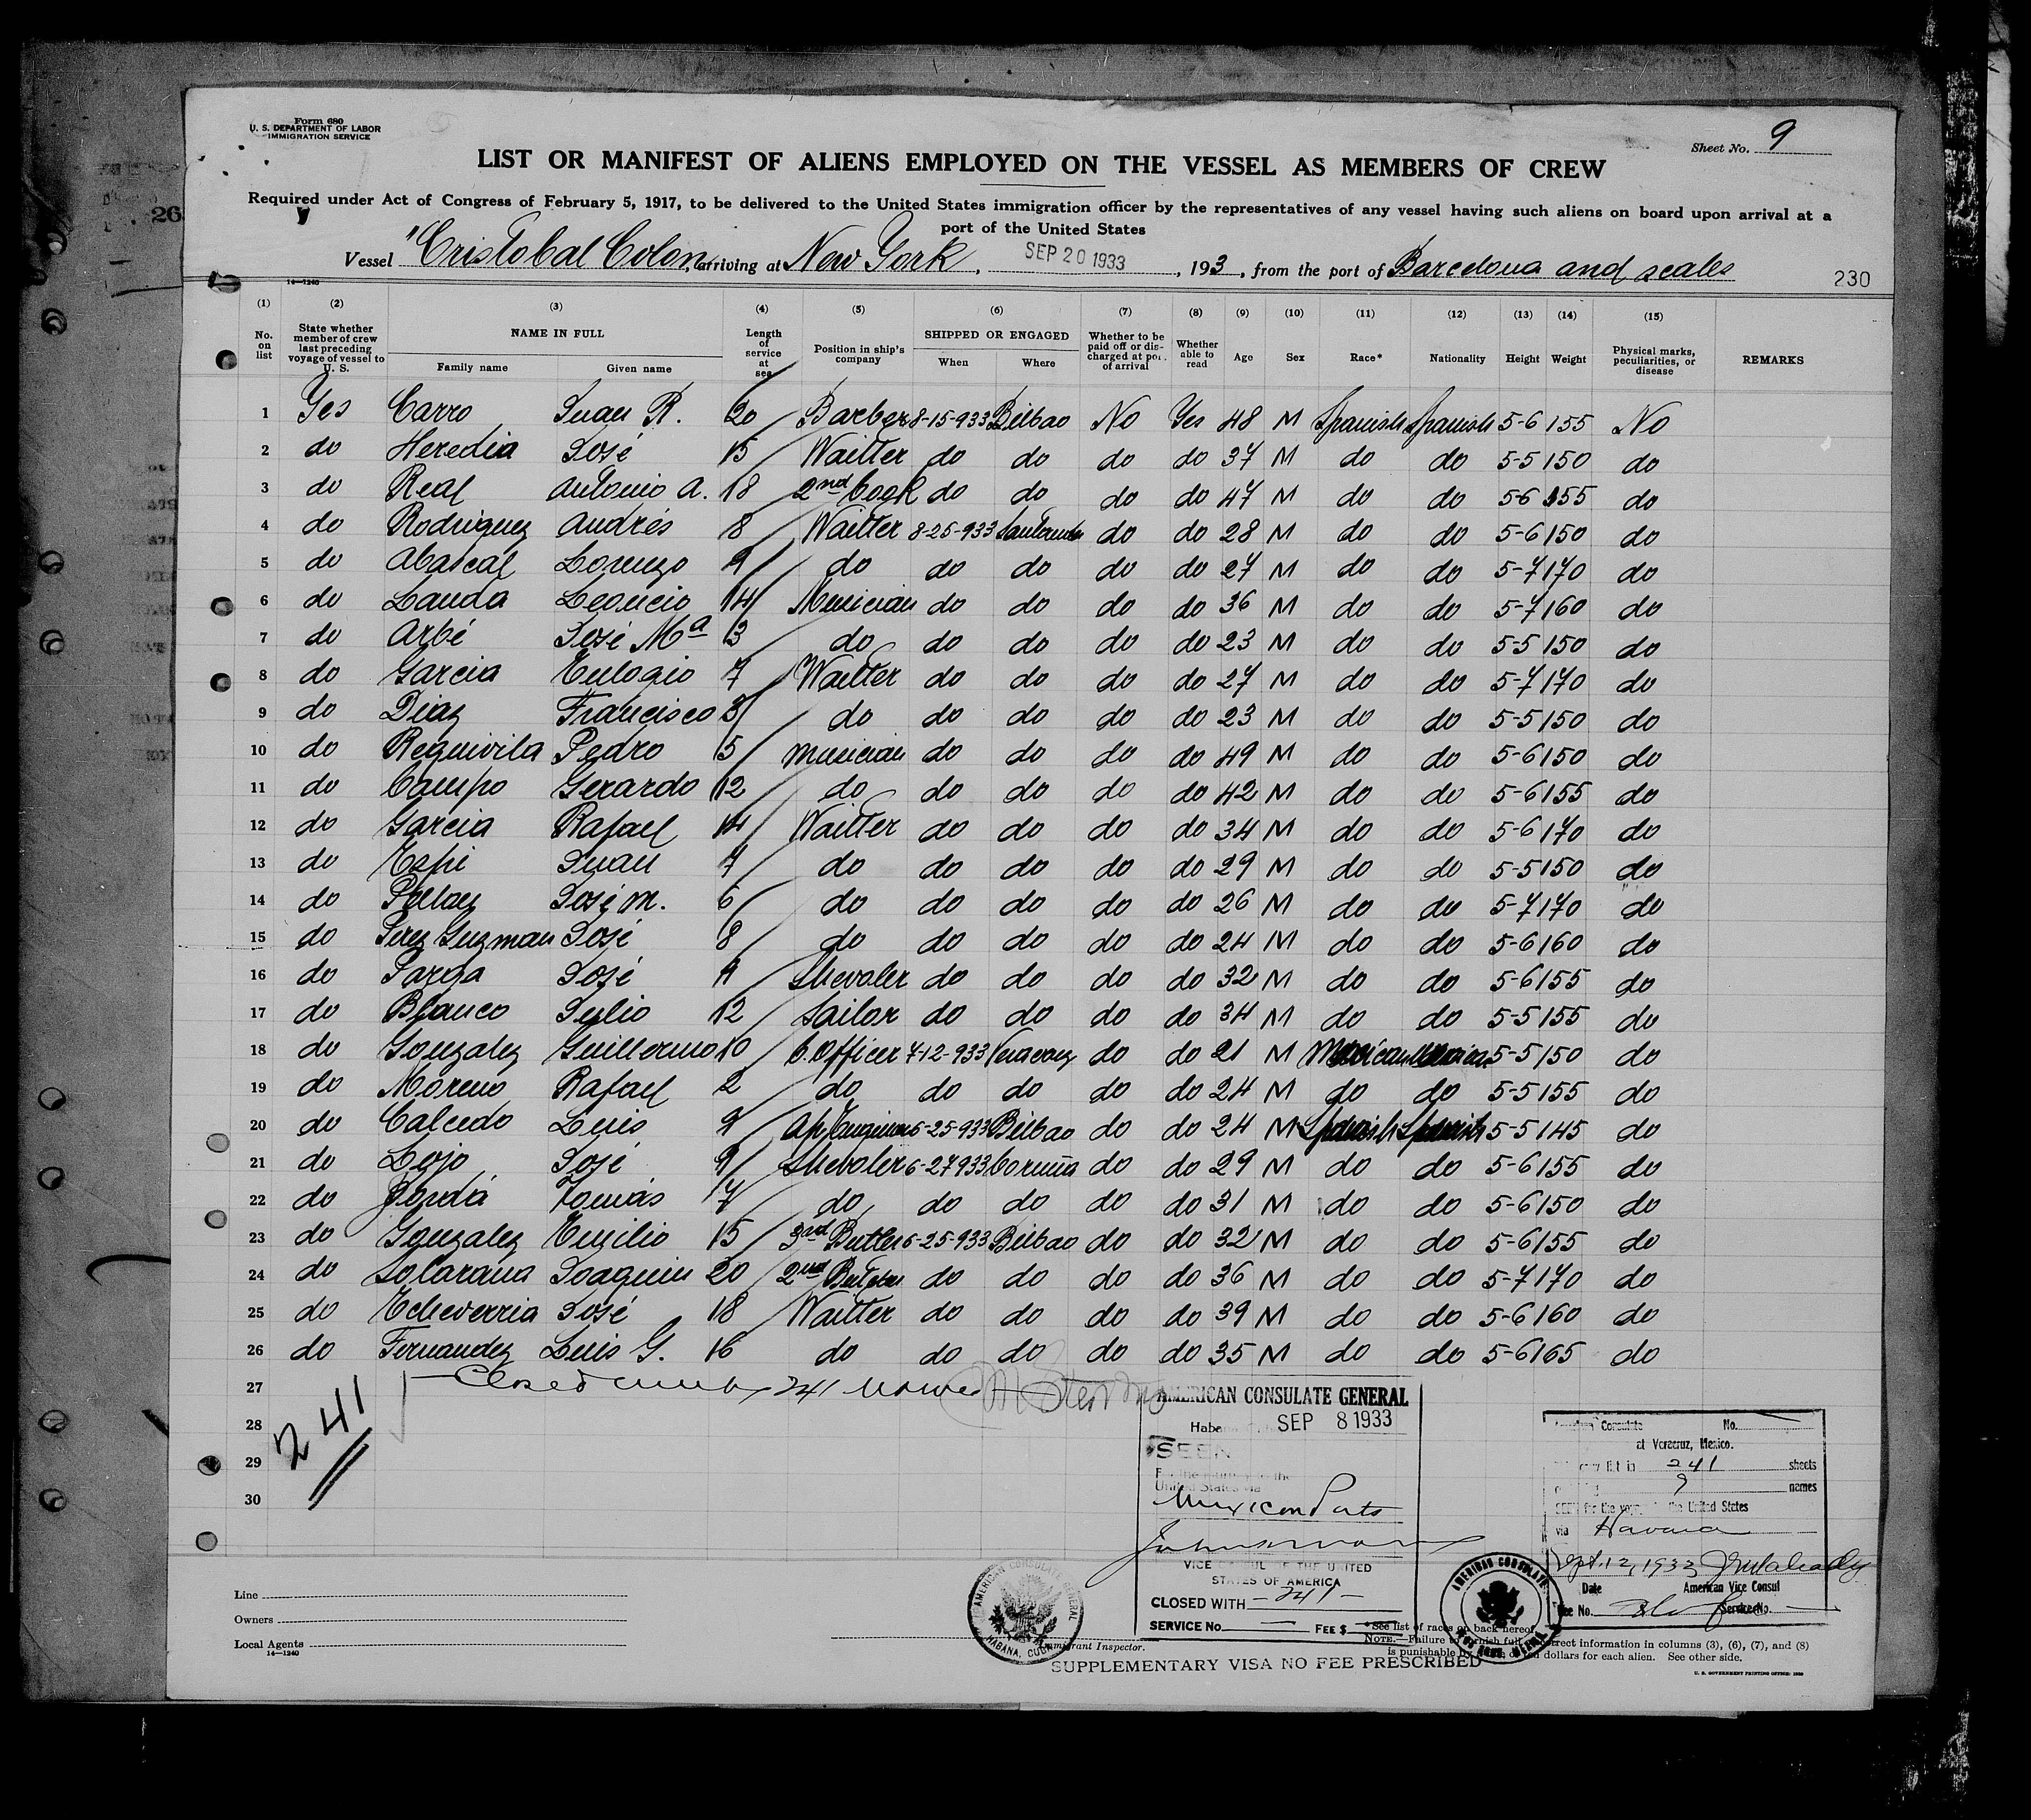 Form 680
U. S. DEPARTMENT OF LABOR
IMMIGRATION SERVICE
Sheet No. 9
LIST OR MANIFEST OF ALIENS EMPLOYED ON THE VESSEL AS MEMBERS OF CREW
Required under Act of Congress of February 5, 1917, to be delivered to the United States immigration officer by the representatives of any vessel having such aliens on board upon arrival at a
port of the United States
Vessel "Cristobal Colon, arriving at New York, SEP 20 1933, 193 3, from the port of Barcelona and scales
230
14—1240
(1) (2) (3) (4) (5) (6) (7) (8) (9) (10) (11) (12) (13) (14) (15)
No. on list State whether member of crew last preceding voyage of vessel to U. S. NAME IN FULL Family name Given name Length of service at sea Position in ship's company SHIPPED OR ENGAGED When Where Whether to be paid off or discharged at port of arrival Whether able to read Age Sex Race* Nationality Height Weight Physical marks, peculiarities, or disease REMARKS
1 Yes Carro Juan R. 20 Barber 8-15-933 Bilbao No Yes 48 M Spanish Spanish 5-6 155 No
2 do Heredia José 15 Waitter do do do do 37 M do do 5-5 150 do
3 do Real Antonio A. 18 2nd Cook do do do do 47 M do do 5-6 155 do
4 do Rodriguez Andrés 8 Waitter 8-25-933 Santander do do 28 M do do 5-6 150 do
5 do Abascal Lorenzo do do do do do 27 M do do 5-7 170 do
6 do Landa Leoncio 14 Musician do do do do 36 M do do 5-7 160 do
7 do Arbé José Ma 3 do do do do do 23 M do do 5-5 150 do
8 do Garcia Eulogio 7 Waitter do do do do 27 M do do 5-7 170 do
9 do Diaz Francisco 3 do do do do do 23 M do do 5-5 150 do
10 do Requivila Pedro 5 Musician do do do do 49 M do do 5-6 150 do
11 do Campo Gerardo 12 do do do do do 42 M do do 5-6 155 do
12 do Garcia Rafael 14 Waitter do do do do 34 M do do 5-6 170 do
13 do Espi Juan 7 do do do do do 29 M do do 5-5 150 do
14 do José M. 6 do do do do do 26 M do do 5-7 170 do
15 do Perez Guzman José 8 do do do do do 24 M do do 5-6 160 do
16 do Parga José Shevoler do do do do 32 M do do 5-6 155 do
17 do Blanco Julio 12 Sailor do do do do 34 M do do 5-5 155 do
18 do Gonzalez Guillermo 10 C. Officer 7-12-933 Veracruz do do 21 M Mexican 5-5 150 do
19 do Moreno Rafael 2 do do do do do 24 M do do 5-5 155 do
20 do Calcedo Luis Ap. Engineer 6-25-933 Bilbao do do 24 M Spanish Spanish 5-5 145 do
21 do Lojo José 9 Shevoler 6-27-933 Coruña do do 29 M do do 5-6 155 do
22 do Tomás 17 do do do do do 31 M do do 5-6 150 do
23 do Gonzalez Emilio 15 3rd Butler 6-25-933 Bilbao do do 32 M do do 5-6 155 do
24 do Solarana Joaquin 20 2nd do do do do 36 M do do 5-7 170 do
25 do Echeverria José 18 Waitter do do do do 39 M do do 5-6 160 do
26 do Fernandez Luis G. 16 do do do do do 35 M do do 5-6 165 do
27 Closed with 241 names
28
29
30
241
AMERICAN CONSULATE GENERAL
Habana SEP 8 1933
SEEN
For the journey to the
United States via
Mexican Ports
VICE CONSUL OF THE UNITED
STATES OF AMERICA
CLOSED WITH - 241 -
SERVICE No. FEE $
SUPPLEMENTARY VISA NO FEE PRESCRIBED
AMERICAN CONSULATE GENERAL
HABANA, CUBA
American Consulate No.
at Veracruz, Mexico.
241 sheets
9 names
SEEN for the voyage to the United States
via Havana
Sept. 12, 1933
Date American Vice Consul
Fee No. Service No.
AMERICAN CONSULATE
Line
Owners
Local Agents
14—1240
Immigrant Inspector.
*See list of races on back hereof
NOTE.—Failure to furnish full or correct information in columns (3), (6), (7), and (8)
is punishable by dollars for each alien. See other side.
U. S. GOVERNMENT PRINTING OFFICE: